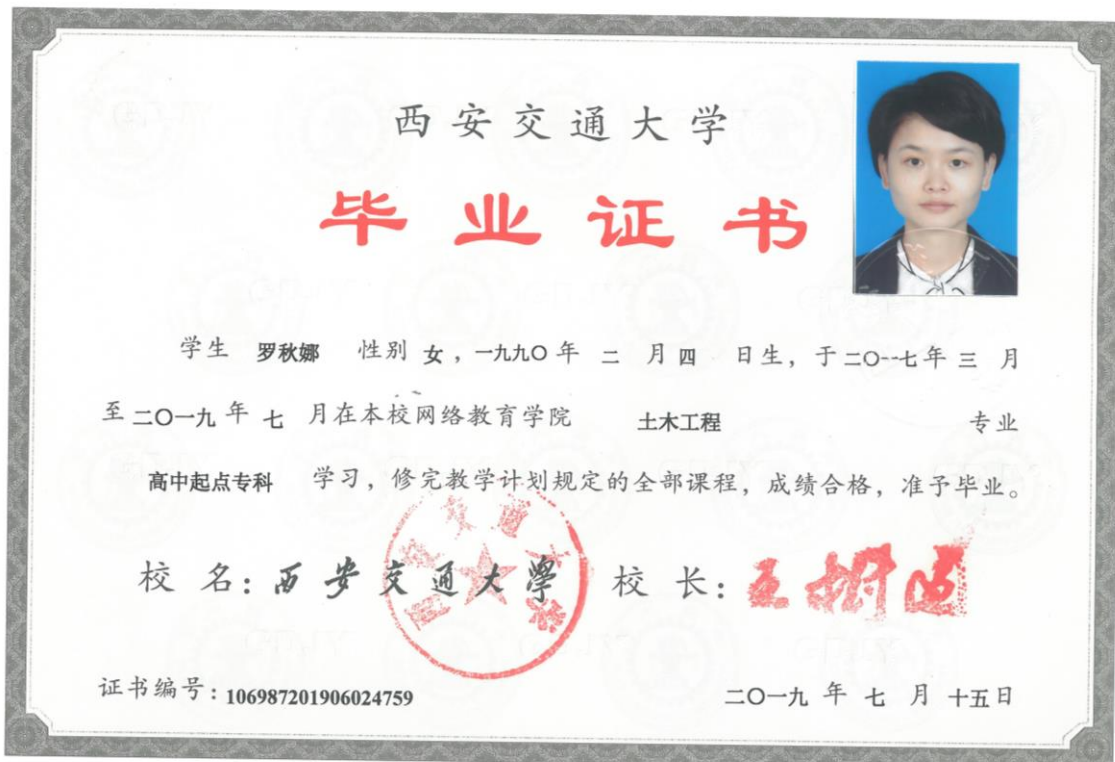 西安交通大学
毕业证书
学生 罗秋娜 性别 女，一九九〇年 二 月 四 日生，于二〇一七年 三 月
至二〇一九 年 七 月在本校网络教育学院 土木工程 专业
高中起点专科 学习，修完教学计划规定的全部课程，成绩合格，准予毕业。
校 名：西安交通大学 校 长：王树国
证书编号：106987201906024759
二〇一九 年 七 月 十五日